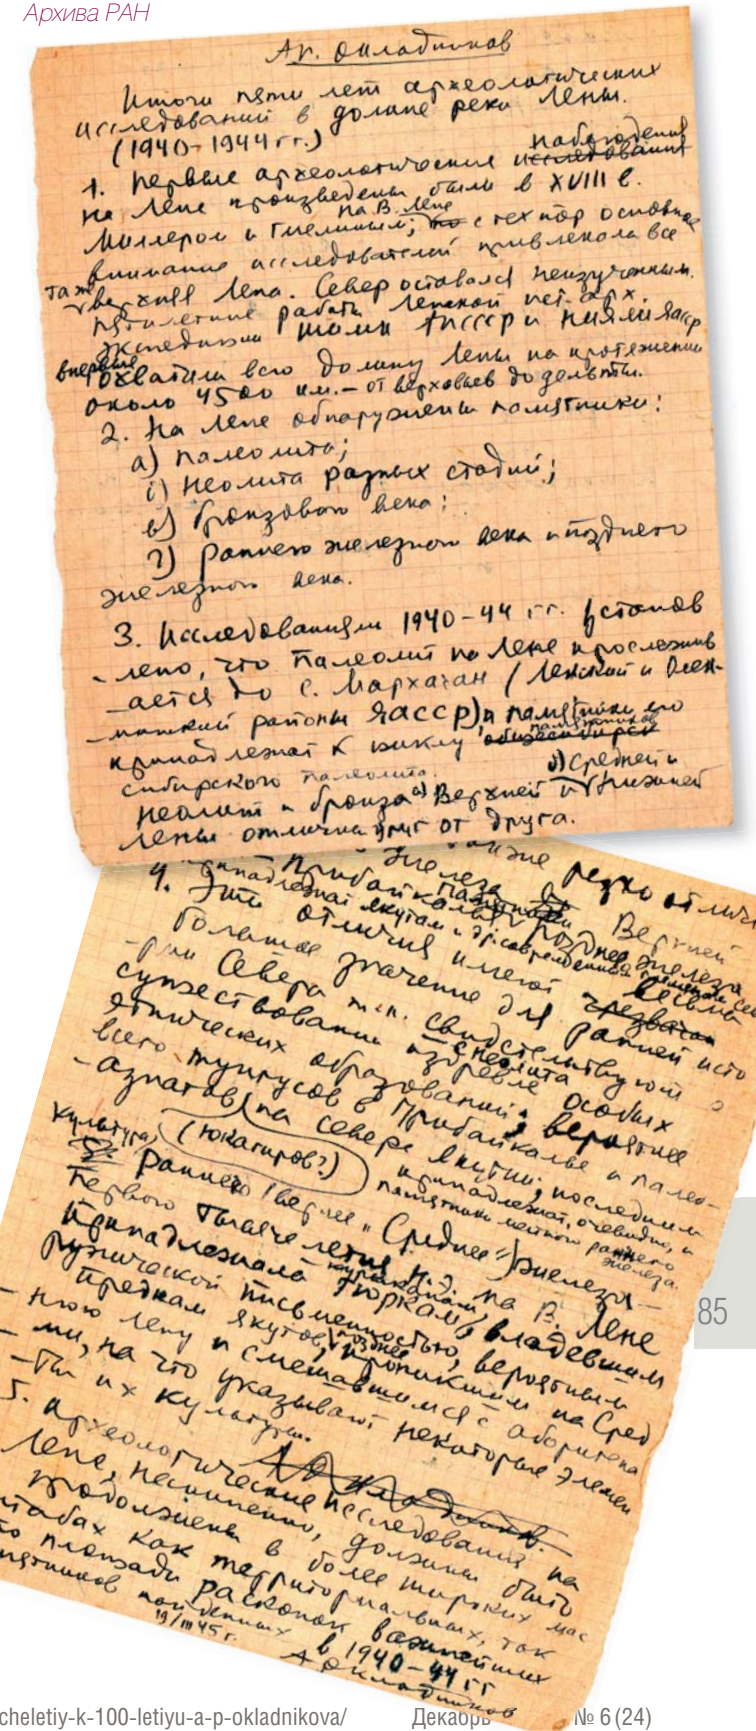 Архива РАН
Ап. Окладников
Итоги пяти лет археологических
исследований в долине реки Лены.
(1940-1944 гг.)
наблюдения
1. Первые археологические исследования
на Лене произведены были в XVIII в.
на В. Лене
Миллером и Гмелиным; но с тех пор основное
внимание исследователей привлекала все
та же
верхняя Лена. Север оставался неизученным.
Пятилетние работы Ленской ист. арх.
экспедиции ИИМК АН СССР и НИИЯЛИ ЯАССР
впервые
охватили всю долину Лены на протяжении
около 4500 км. – от верховьев до дельты.
2. На Лене обнаружены памятники:
а) палеолита;
б) неолита разных стадий;
в) бронзового века;
г) раннего железного века и позднего
железного века.
3. Исследованиями 1940-44 гг. установ
-лено, что палеолит на Лене прослежив
-ается до с. Мархачан (Ленский и Олек-
-минский районы ЯАССР) и памятники его
памятников
принадлежат к циклу общесибирск
сибирского палеолита.
б) Средней и
Неолит и бронза а) Верхней и Нижней
Лены отличны друг от друга.
железа также резко отлич
Прибайкалья памятники Верхней
принадлежат якутам и др. современным племенам сев
позднее железа
4. Эти отличия имеют весьма
чрезвычай
большое значение для ранней исто
-рии Севера т.к. свидетельствуют о
с неолита
существовании издревле особых
этнических образований; вероятнее
всего тунгусов в Прибайкалье и палео-
-азиатов на севере Якутии; последним
(юкагиров?)
принадлежат, очевидно, и
памятники местного раннего
железа.
Культура
раннего (вернее „Среднее") железа –
первого тысячелетия н.э. на В. Лене
принадлежала тюркам, владевшим
курыканам,
рунической письменностью, вероятным
предкам якутов, позднее проникшим на Сред
-нюю Лену и смешавшимся с аборигена
-ми, на что указывают некоторые элемен
-ты их культуры.
5. Археологические исследования на
Лене, несомненно, должны быть
продолжены в более широких мас
штабах как территориальных, так
по площади раскопок важнейших
памятников найденных в 1940-44 гг
19/III 45 г.
А Окладников
85
cheletiy-k-100-letiyu-a-p-okladnikova/
Декабрь
№ 6 (24)